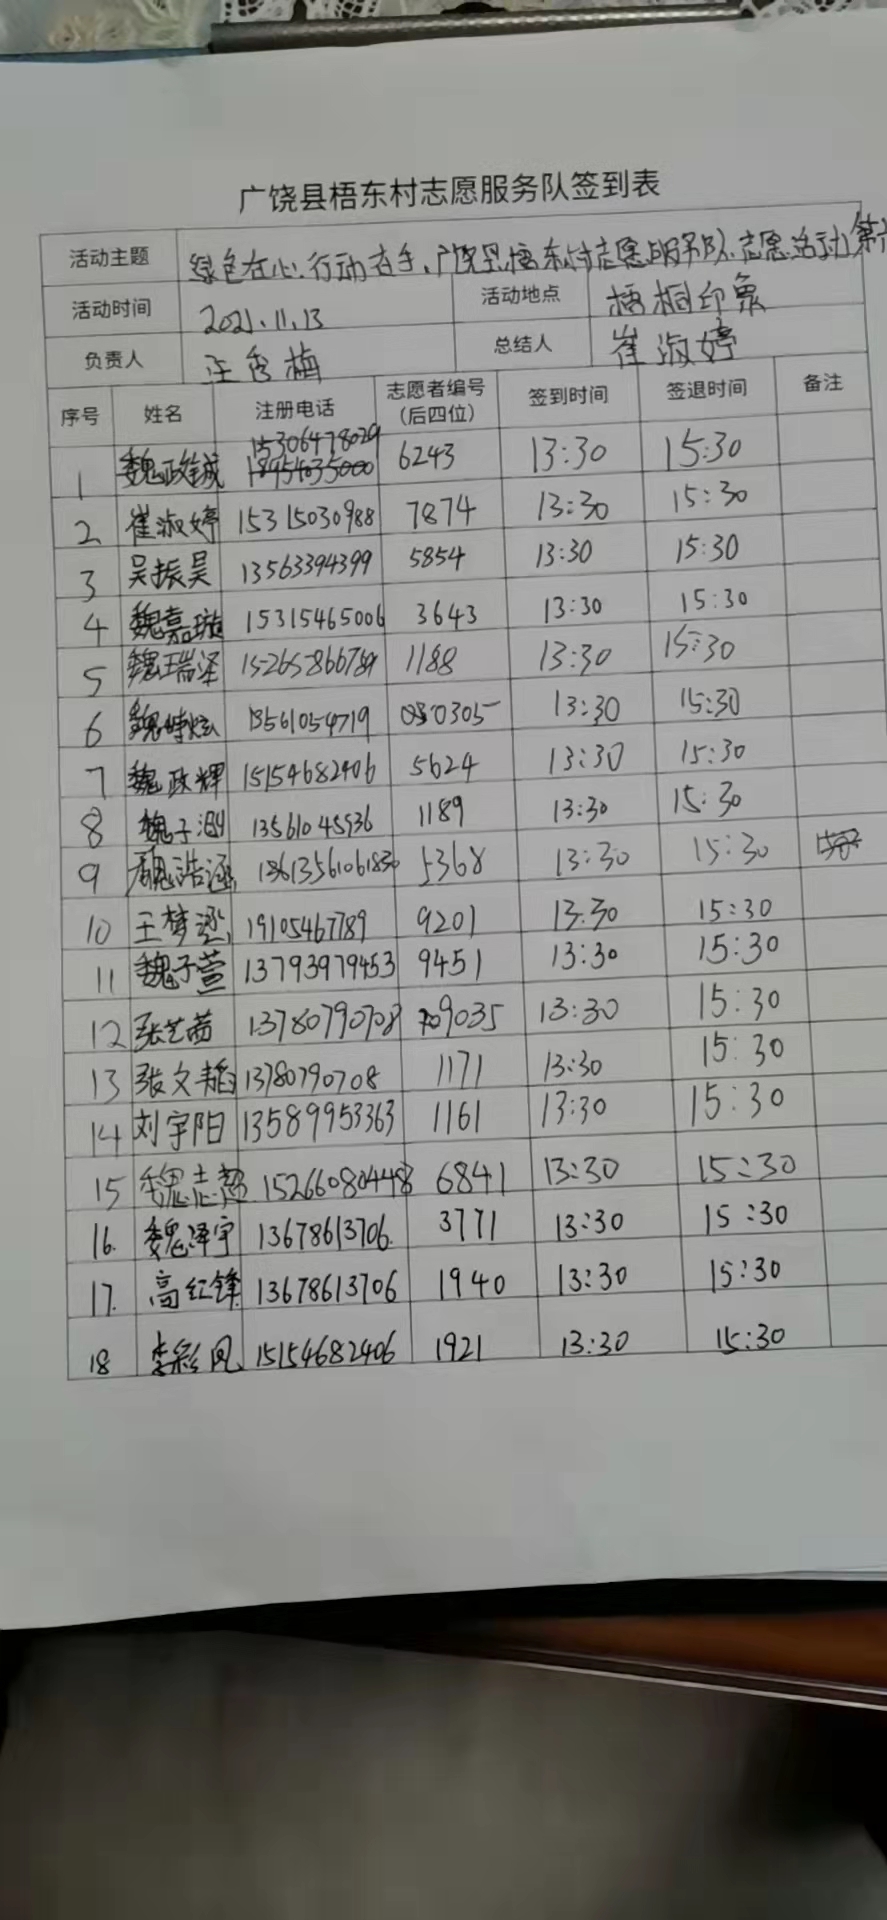 广饶县梧东村志愿服务队签到表
活动主题 绿色在心、行动在手、广饶县梧东村志愿服务队志愿活动第
活动时间 2021.11.13 活动地点 梧桐印象
负责人 王秀梅 总结人 崔淑婷
序号 姓名 注册电话 志愿者编号（后四位） 签到时间 签退时间 备注
1 魏政铖 15306478029 6243 13:30 15:30
2 崔淑婷 15315030988 7874 13:30 15:30
3 吴振昊 13563394399 5854 13:30 15:30
4 魏嘉璇 15315465006 3643 13:30 15:30
5 魏瑞泽 15265866789 1188 13:30 15:30
6 魏 13561054719 0305 13:30 15:30
7 魏政辉 15154682406 5624 13:30 15:30
8 魏子 13561045936 1189 13:30 15:30
9 魏浩涵 13561061830 5368 13:30 15:30
10 王梦 19105467789 9201 13:30 15:30
11 魏子萱 13793979453 9451 13:30 15:30
12 张艺茜 13780790708 9035 13:30 15:30
13 张文韬 13780790708 1171 13:30 15:30
14 刘宇阳 13589953363 1161 13:30 15:30
15 魏志超 15266080448 6841 13:30 15:30
16. 魏泽宇 13678613706. 3771 13:30 15:30
17. 高红锋 13678613706 1940 13:30 15:30
18 李彩凤 15154682406 1921 13:30 15:30